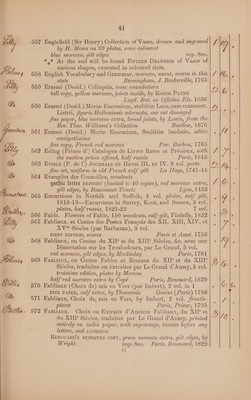 41
557 Englefield (Sir Henry) Collection of Vases, drawn and engraved
by H. Moses on 39 plates, some coloured
blue morocco, gilt edges roy. 8vo.
*** At the end will be found FIFTEEN DRAWINGS of Vases of
various shapes, executed in coloured tints.
558 English Vocabulary and Grammar, morocco, uncut, scarce in this
state Birmingham, J. Baskerville, 1765
559 Erasmi (Desid.) Colloquia, nunc emendatiora
bull copy, yellow morocco, joints inside, by ROGER PAYNE
Lugd. Bat. ex Officina Elz. 1636
560 Erasmi (Desid.) Moriæ Encomium, stultitiæ Laus, cum comment.
Listrii, figuris Holbenianis adornata, one cut damaged
fine paper, blue morocco extra, broad joints, by Lewis, from the
Rev. Theo. Williams' Collection Basileæ, 1676
561 Erasmi (Desid.) Moriæ Encomium, Stultitiæ laudatio, editio
castigatissima
fine copy, French red morocco Par. Barbou, 1765
562 Esling (Prince d') Catalogue de Livres Rares et Précieux, with
the auction prices affixed, half russia Paris, 1845
563 ETOILE (P. de l') JOURNALS DE HENRI III. ET IV. 9 vol. portraits
fine set, uniform in old French calf gilt La Haye, 1741-44
564 Evangiles des Connoilles, woodcuts
gothic letter REPRINT (limited to 40 copies), red morocco extra,
gilt edges, by Bauzonnet-Trautz Lyon, 1493
565 Excursions in Norfolk and Suffolk, 4 vol. plates, calf gilt,
1818-19—Excursions in Surrey, Kent, and Sussex, 3 vol.
plates, half russia, 1821-22 7 vol.
566 Fable. Flowers of Fable, 100 woodcuts, calf gilt, Vizitelly, 1832
567 Fabliaux, et Contes des Poetes François des XII, XIII, XIV, et
XVmes Siècles (par Barbazan), 3 vol.
FIRST EDITION, scarce Paris et Amst. 1756
568 Fabliaux, ou Contes du XIIe et du XIIIe Siècles, fin. avec une
Dissertation sur les Troubadours, par Le Grand, 5 vol.
red morocco, gilt edges, by Mackinlay Paris, 1781
569 FABLIAUX, ou Contes Fables et Romans du XIIe et du XIIIe
Siècles, traduites ou extraites par Le Grand d'Aussy, 5 vol.
troisieme edition, plates by Moreau
half red morocco extra by Cape Paris, Renouard, 1829
570 Fabliaux (Choix de) mis en Vers (par Imbert), 2 vol. in 1
FINE PAPER, calf extra, by Thouvenin Genève (Paris) 1788
571 Fabliaux, Choix de, mis en Vers, by Imbert, 2 vol. frontis-
pieces Paris, Prieur, 1795
572 FABLIAUX. Choix ou Extraits d'Anciens Fabliaux, du XIIe et
du XIIIe Siècles, traduites par Le Grand d'Aussy, printed
entirely on india paper, with engravings, VARIOUS before any
letters, and ETCHINGS
RENOUARD'S RESERVED COPY, green morocco extra, gilt edges, by
Wright imp. 8vo. Paris, Renouard, 1829
G